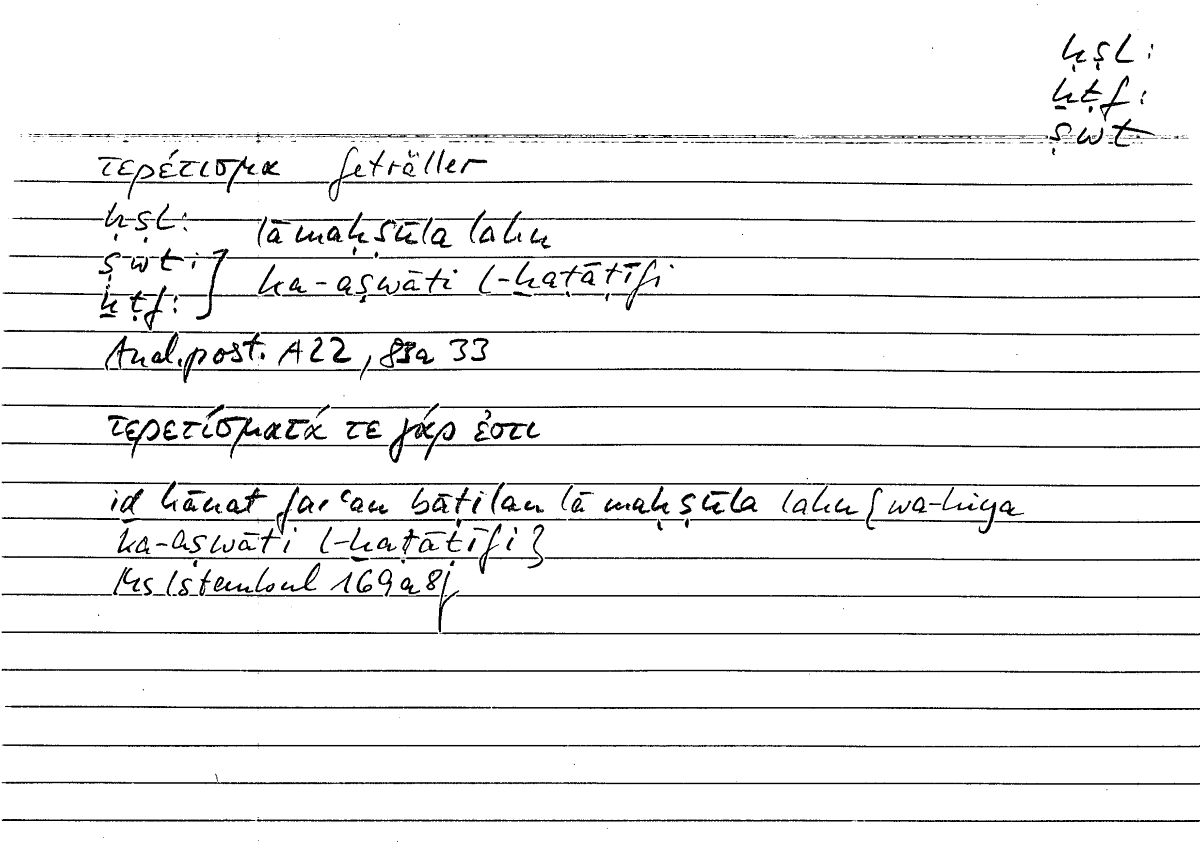 ḥṣl:
ḫṭf:
ṣwt
τερέτισμα Geträller
ḥṣl: lā maḥṣūla lahu
ṣwt:
ḫṭf: ka-aṣwāti l-ḫaṭāṭīfi
Anal. post. A22, 83a 33
τερετίσματά τε γάρ ἐστι
iḏ kānat farʿan bāṭilan lā maḥṣūla lahu {wa-hiya
ka-aṣwāti l-ḫaṭāṭīfi}
Ms Istanbul 169a8f